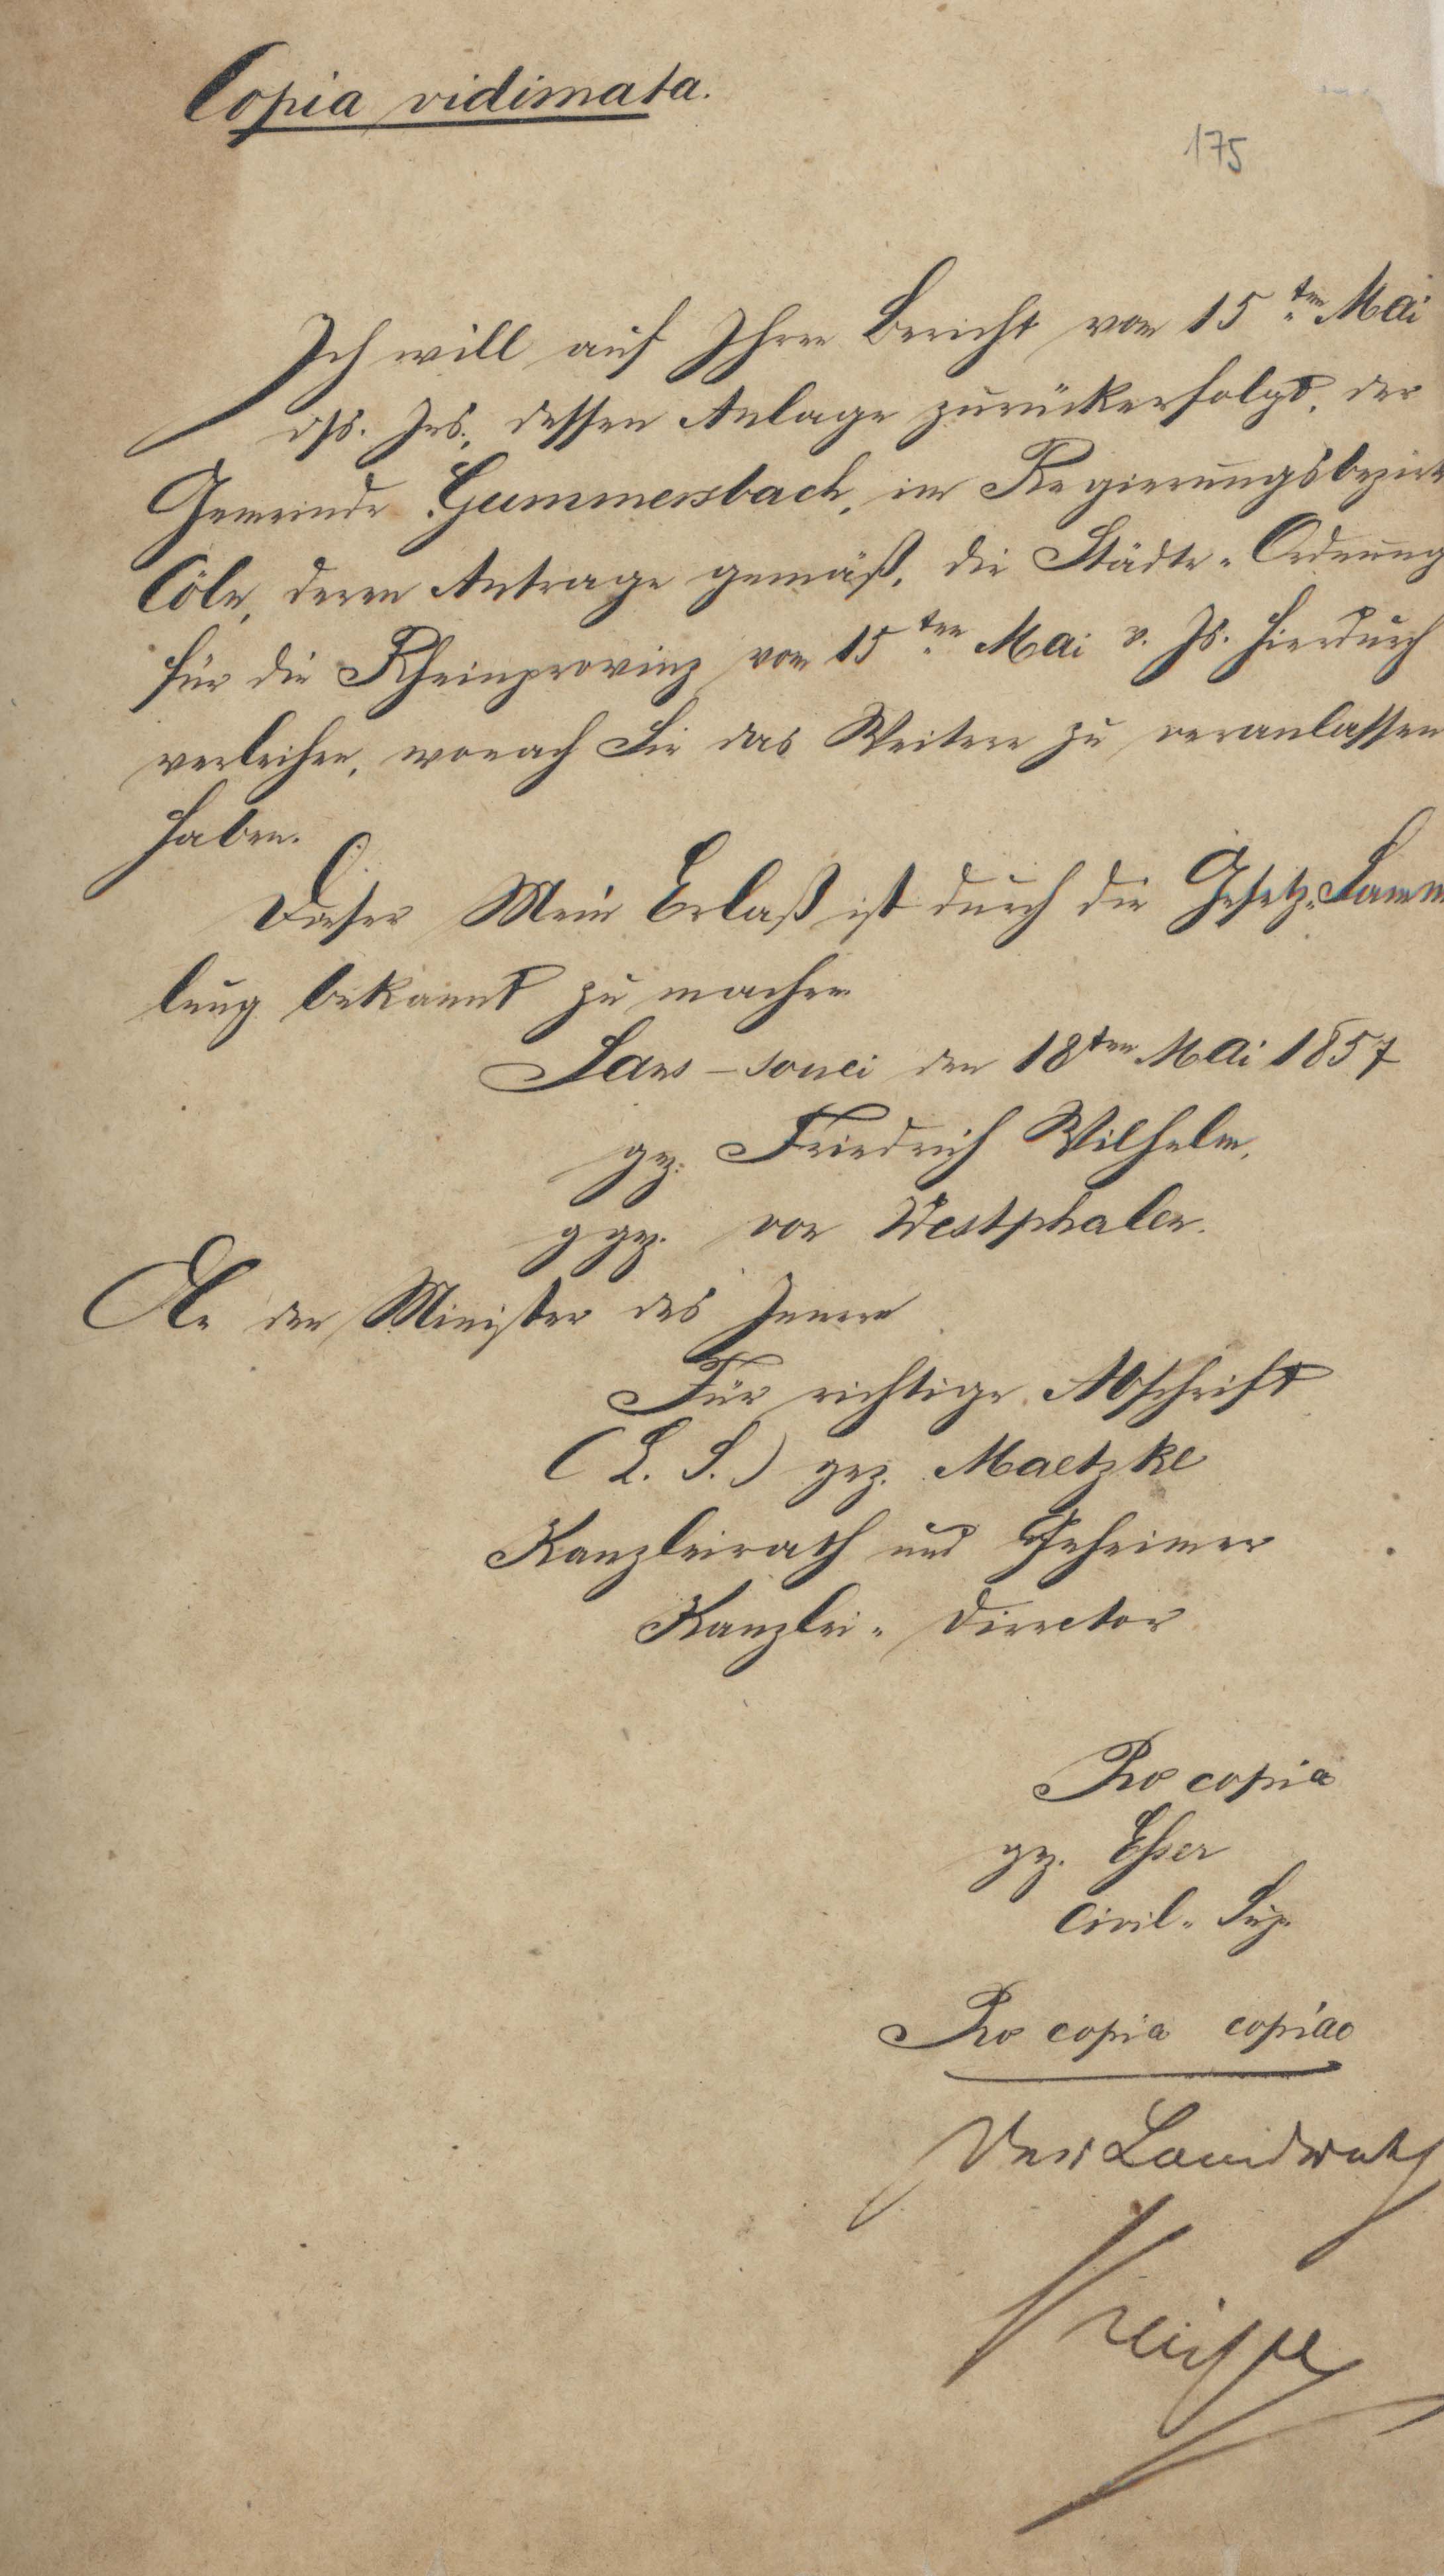 Copia vidimata.
175
Ich will auf Ihren Bericht vom 15ten Mai
dss. Jrs., dessen Anlage zurückerfolgt, der
Gemeinde Gummersbach, im Regierungsbezirk
Cöln, deren Antrage gemäß, die Städte-Ordnung
für die Rheinprovinz vom 15ten Mai v. Js. hierdurch
verleihen, wonach Sie das Weitere zu veranlassen
haben.
Dieser Mein Erlaß ist durch die Gesetz-Samm
lung bekannt zu machen
Sans-souci den 18ten Mai 1857
gez. Friedrich Wilhelm.
ggez. von Westphalen.
An den Minister des Innern
Für richtige Abschrift
(L. S.) gez. Maetzke
Kanzleirath und Geheimer
Kanzlei-Director
Pro copia
gez. Esser
Civil-Sup.
Pro copia copiae
Der Landrath